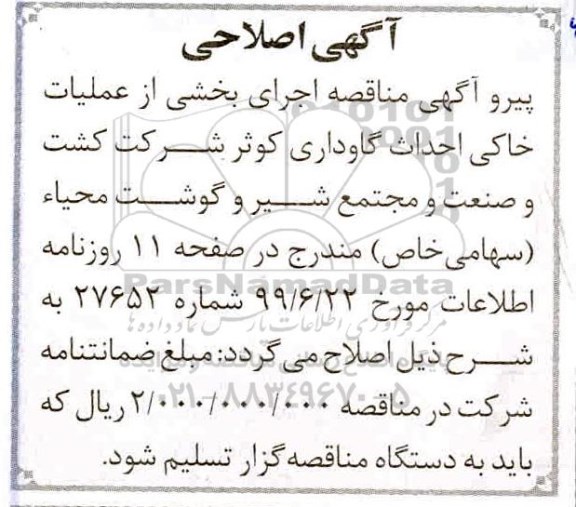 آگهی اصلاحی
پیرو آگهی مناقصه اجرای بخشی از عملیات
خاکی احداث گاوداری کوثر شرکت کشت
و صنعت و مجتمع شیر و گوشت محیاء
(سهامی خاص) مندرج در صفحه ۱۱ روزنامه
ParsNamadData
اطلاعات مورخ ۹۹/۶/۲۲ شماره ۲۷۶۵۳ به
مرکز فرآوری اطلاعات پارس نماد داده ها
شرح ذیل اصلاح می گردد: مبلغ ضمانتنامه
۰۲۱-۸۸۳۴۹۶۷۰-۵
شرکت در مناقصه ۲/۰۰۰/۰۰۰/۰۰۰ ریال که
باید به دستگاه مناقصه گزار تسلیم شود.